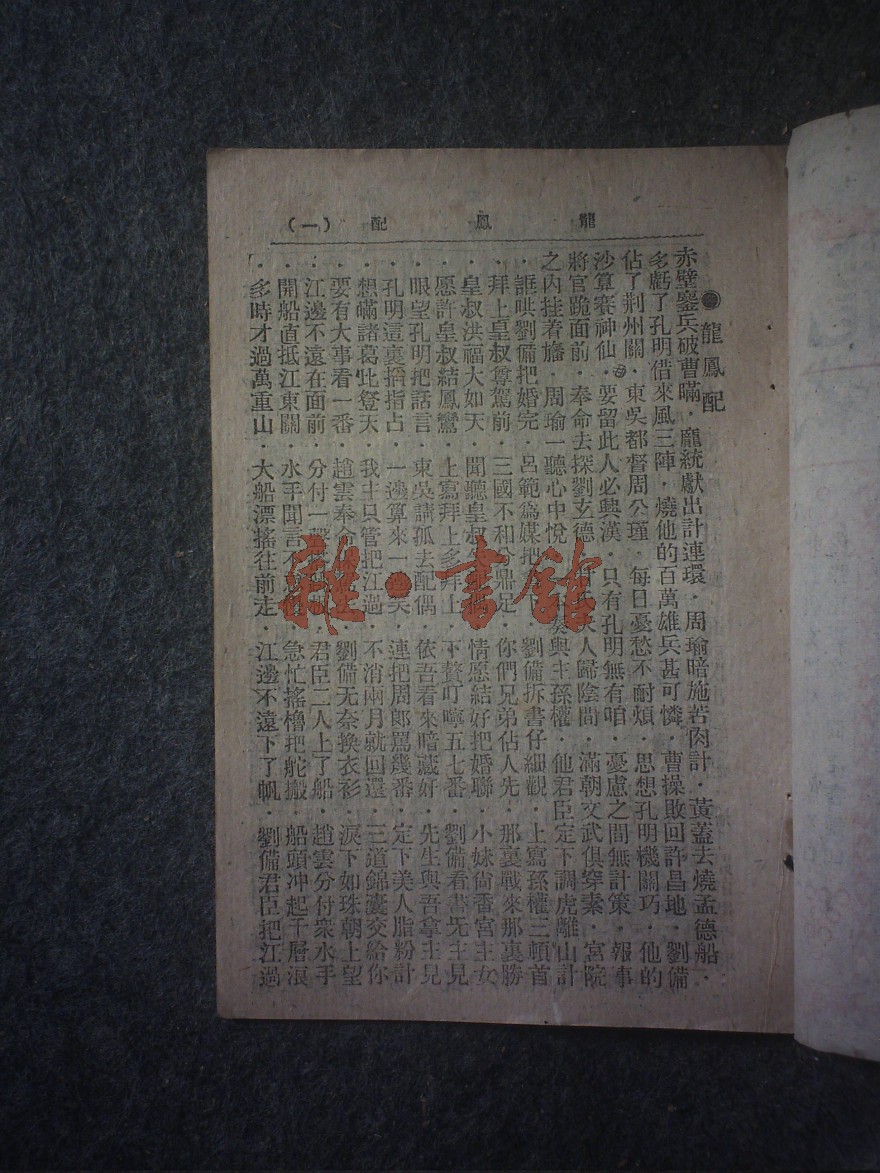 龍鳳配（一）
龍鳳配
赤壁鏖兵破曹瞞·龐統獻出計連環·周瑜暗施苦肉計·黃蓋去燒孟德船·
多虧了孔明借來風三陣·燒他的百萬雄兵甚可憐·曹操敗回許昌地·劉備
佔了荆州關·東吳都督周公瑾·每日憂愁不耐煩·思想孔明機關巧·他的
沙算賽神仙·要留此人必興漢·只有孔明無有咱·憂慮之間無計策·報事
將官跪面前·奉命去探劉玄德·夫人歸陰間·滿朝文武俱穿素·宮院
之内挂着旛·周瑜一聽心中悅·奏與主孫權·他君臣定下調虎離山計
·誆哄劉備把婚完·呂範爲媒把 劉備拆書仔細觀·上寫孫權三頓首
·拜上皇叔尊駕前·三國不和分鼎足·你們兄弟佔人先·那裏戰來那裏勝
·皇叔洪福大如天·聞聽皇叔 情愿結好把婚聯·小妹尙香宮主女
·愿許皇叔結鳳鸞·上寫拜上多拜上·下贅叮嚀五七番·劉備看書旡主見
·眼望孔明把話言·東吳請孤去配偶·依吾看來暗藏好·先生與吾拿主見
·孔明這裏搯指占·一邊算來一 連把周郞罵幾番·定下美人脂粉計
·想瞞諸葛比登天·我主只管把江過·不消兩月就回還·三道錦囊交給你
·要有大事看一番·趙雲奉命 劉備无奈換衣衫·淚下如珠朝上望
·江邊不遠在面前·分付一聲 君臣二人上了船·趙雲分付衆水手
·開船直抵江東關·水手聞言不 急忙搖櫓把舵搬·船頭冲起千層浪
·多時才過萬重山·大船漂搖往前走·江邊不遠下了帆·劉備君臣把江過
雜·書館